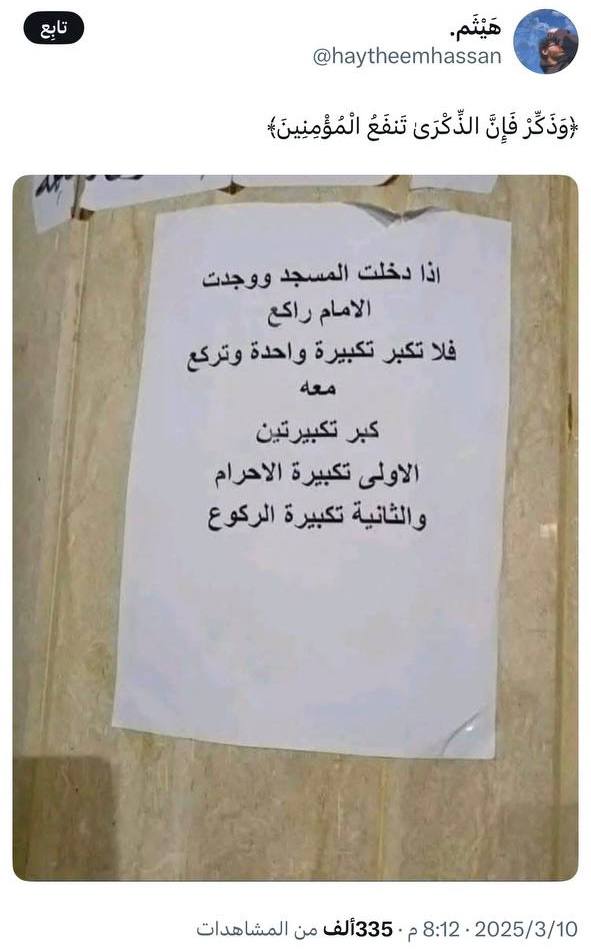 هَيْثَم.
تابِع
@haytheemhassan
﴿وَذَكِّرْ فَإِنَّ الذِّكْرَىٰ تَنفَعُ الْمُؤْمِنِينَ﴾
اذا دخلت المسجد ووجدت
الامام راكع
فلا تكبر تكبيرة واحدة وتركع
معه
كبر تكبيرتين
الاولى تكبيرة الاحرام
والثانية تكبيرة الركوع
2025/3/10 · 8:12 م · 335ألف من المشاهدات